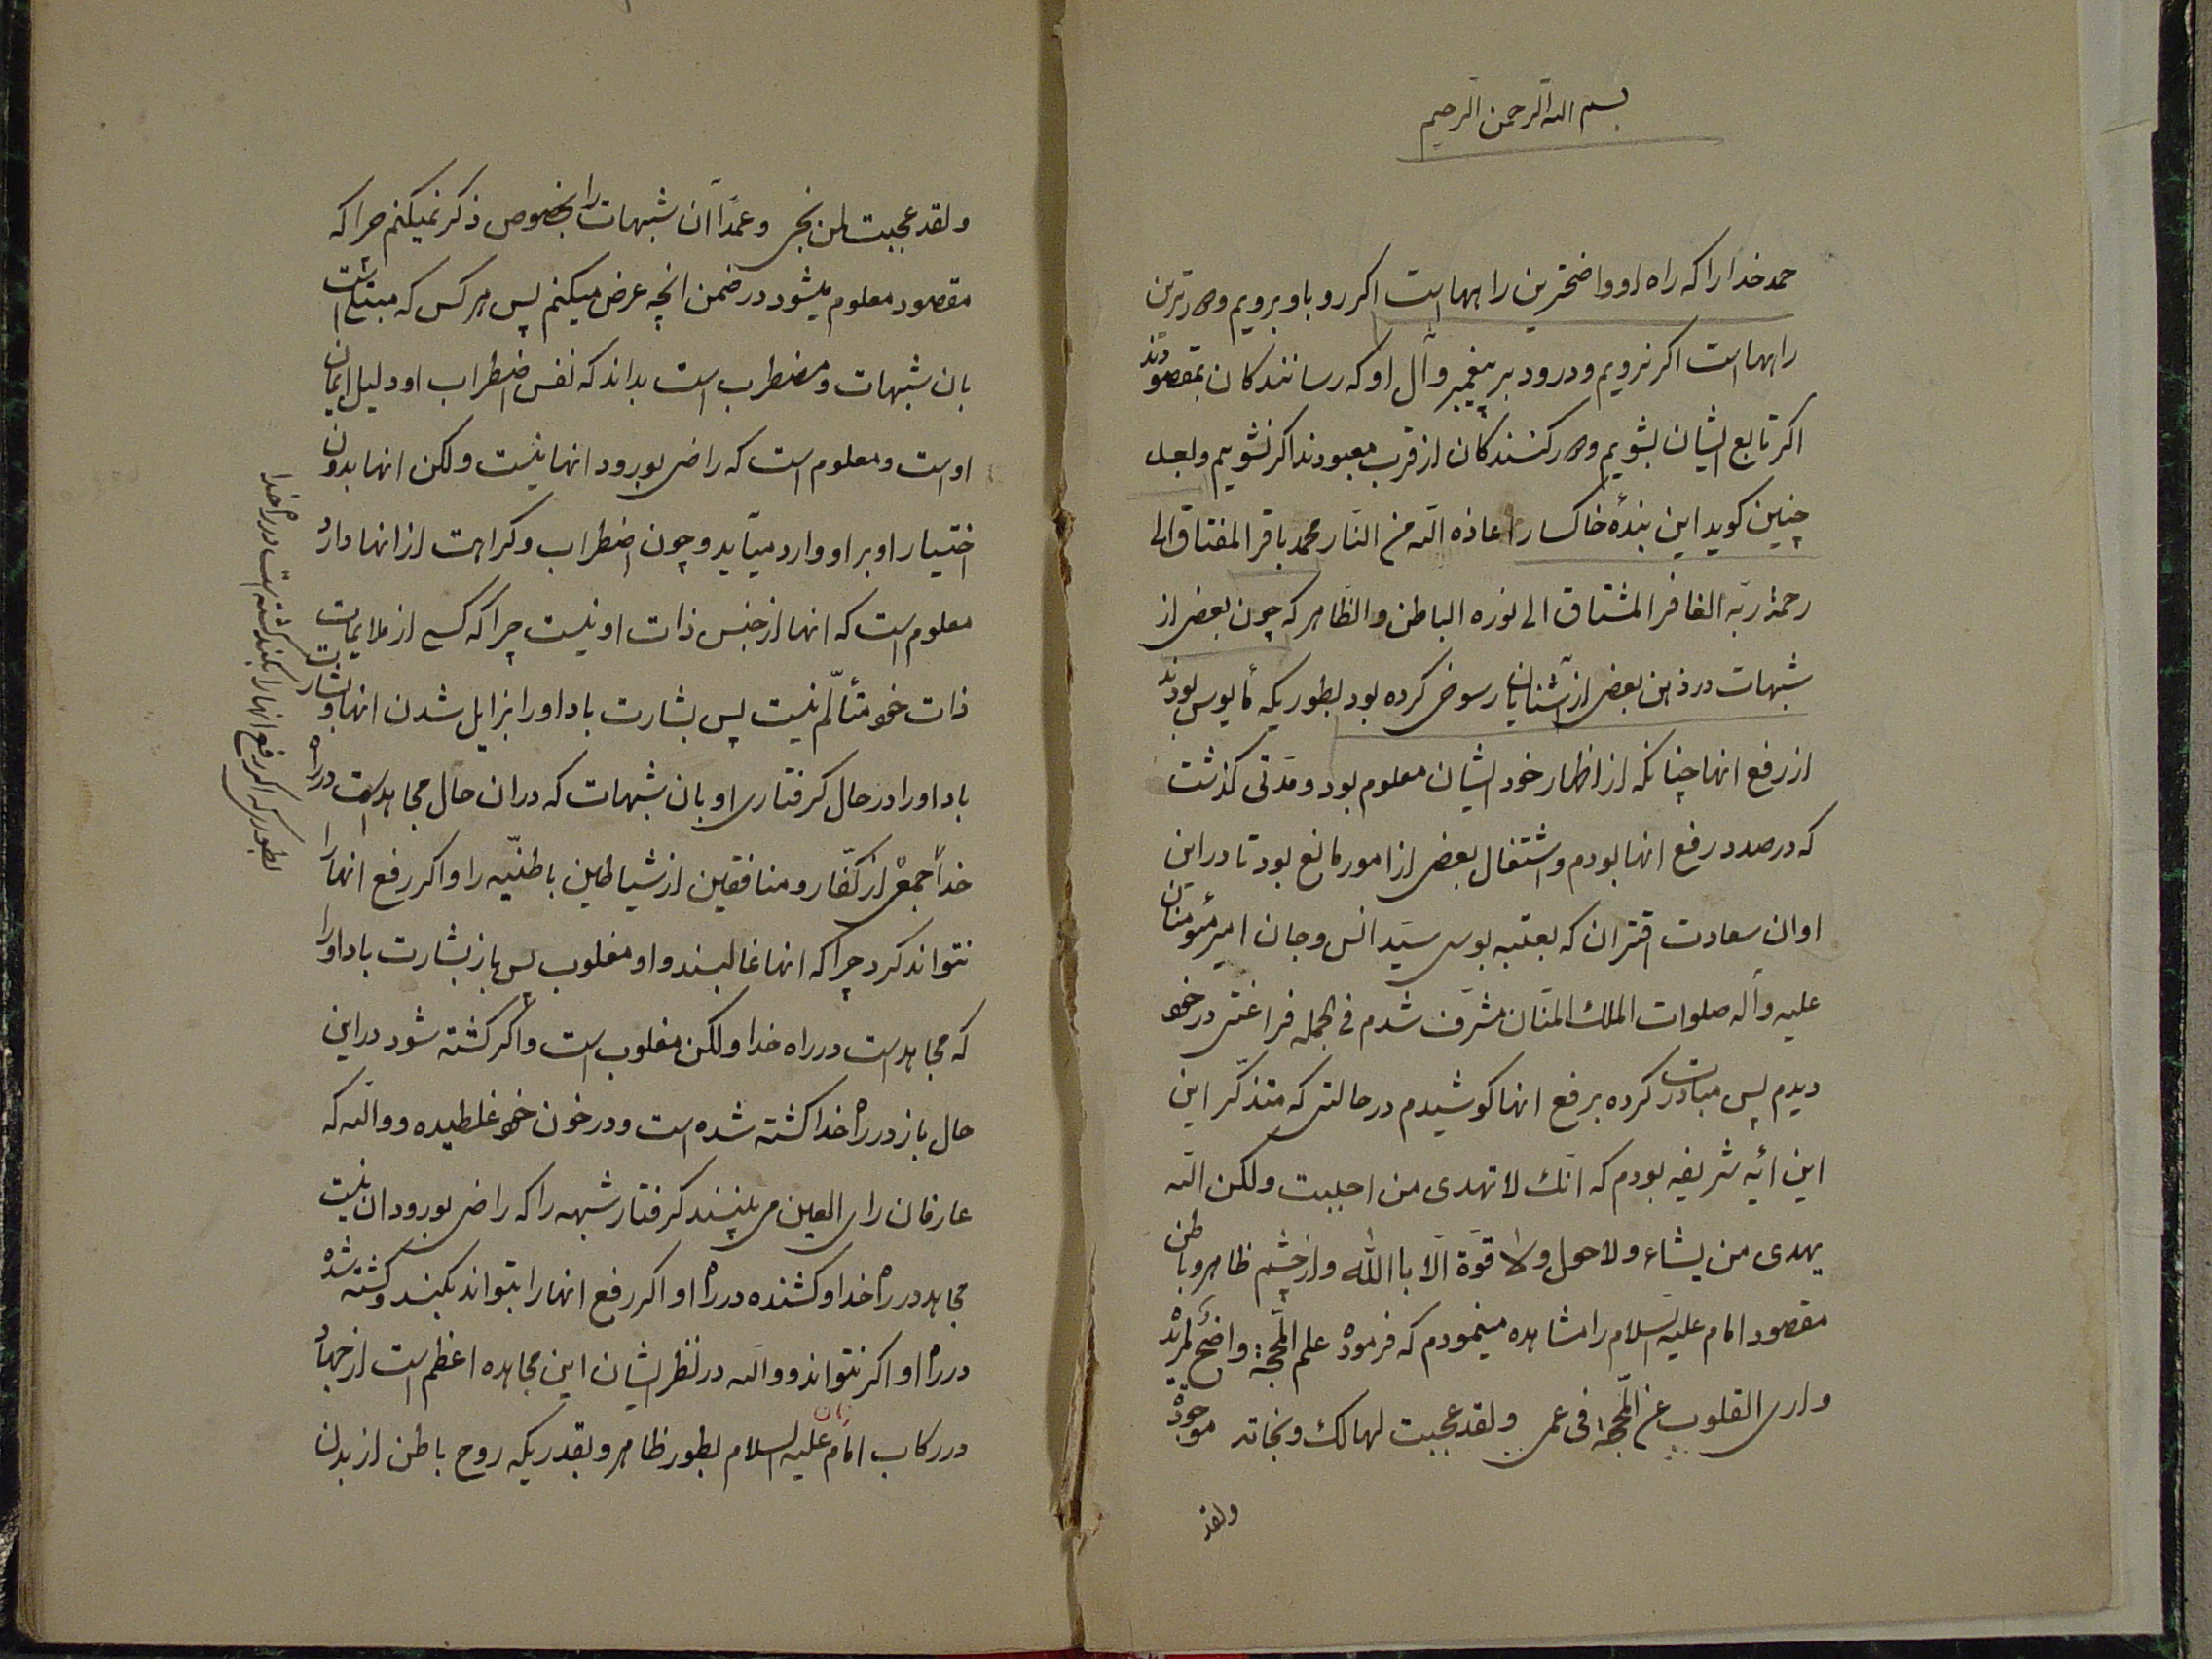 بسم الله الرحمن الرحیم
حمد خدا را که راه او واضحترین راههاست اکر رو باو برویم و دورترین
راهها است اکر نرویم و درود بر پیغمبر و آل او که رسانندکان بمقصودند
اکر تابع ایشان بشویم و دور کنندکان از قرب معبودند اکر نشویم و بعد
چنین کوید این بندهٔ خاکسار اعاذه الله من النار محمد باقر المفتاق الی
رحمة ربّه الغافر المشتاق الی نوره الباطن و الظاهر که چون بعضی از
شبهات در ذهن بعضی از آشنایان رسوخ کرده بود بطوریکه مأیوس بودند
از رفع انها چنانکه از اظهار خود ایشان معلوم بود و مدّتی کذشت
که درصدد رفع انها بودم و اشتغال بعضی از امور مانع بود تا در این
اوان سعادت اقتران که بعتبه بوسی سیّد انس و جان امیر مؤمنان
علیه و آله صلوات الملك المنّان مشرّف شدم فی الجمله فراغتی در خود
دیدم پس مبادرت کرده برفع انها کوشیدم در حالتی که متذکّر این
این ائیه شریفه بودم که انّك لا تهدی من احببت ولکن الله
یهدی من یشاء و لا حول و لا قوّة الّا باالله و از چشم ظاهر و باطن
مقصود امام علیه السلام را مشاهده مینمودم که فرموده علم المحجّة واضح لمریده
و اری القلوب عن المحجّة فی عمی و لقد عجبت لهالك و نجاته موجودة
ولقد
و لقد عجبت لمن نجی و عمداً آن شبهات را بخصوص ذکر نمیکنم چرا که
مقصود معلوم میشود در ضمن انچه عرض میکنم پس هر کس که مبتلی است
بان شبهات و مضطرب است بداند که نفس اضطراب او دلیل ایمان
او است و معلوم است که راضی بورود انها نیست ولکن انها بدون
اختیار او بر او وارد میآید و چون اضطراب و کراهت از انها دارد
معلوم است که انها از جنس ذات او نیست چرا که کسی از ملایمات
ذات خود متألّم نیست پس بشارت باد او را بزایل شدن انها و بشارت
باد او را در حال کرفتاری او بان شبهات که در ان حال مجاهد است در راه
خدا جمعی از کفّار و منافقین از شیاطین باطنیّه را و اکر رفع انها را
نتواند کرد چرا که انها غالبند و او مغلوب پس باز بشارت باد او را
که مجاهد است در راه خدا ولکن مغلوب است و اکر کشته شود در این
حال باز در راه خدا کشته شده است و در خون خود غلطیده و والله که
عارفان رای العین می بینند کرفتار شبهه را که راضی بورود ان نیست
مجاهد در راه خدا و کشنده در راه او اکر رفع انها را بتواند بکند و کشته شده
در راه او اکر نتواند و والله در نظر ایشان این مجاهده اعظم است از جهاد
در رکاب امام زمان علیه السلام بطور ظاهر و بقدریکه روح باطن از بدن
بطوری که اکر رفع انها را بکند کشته است در راه خدا